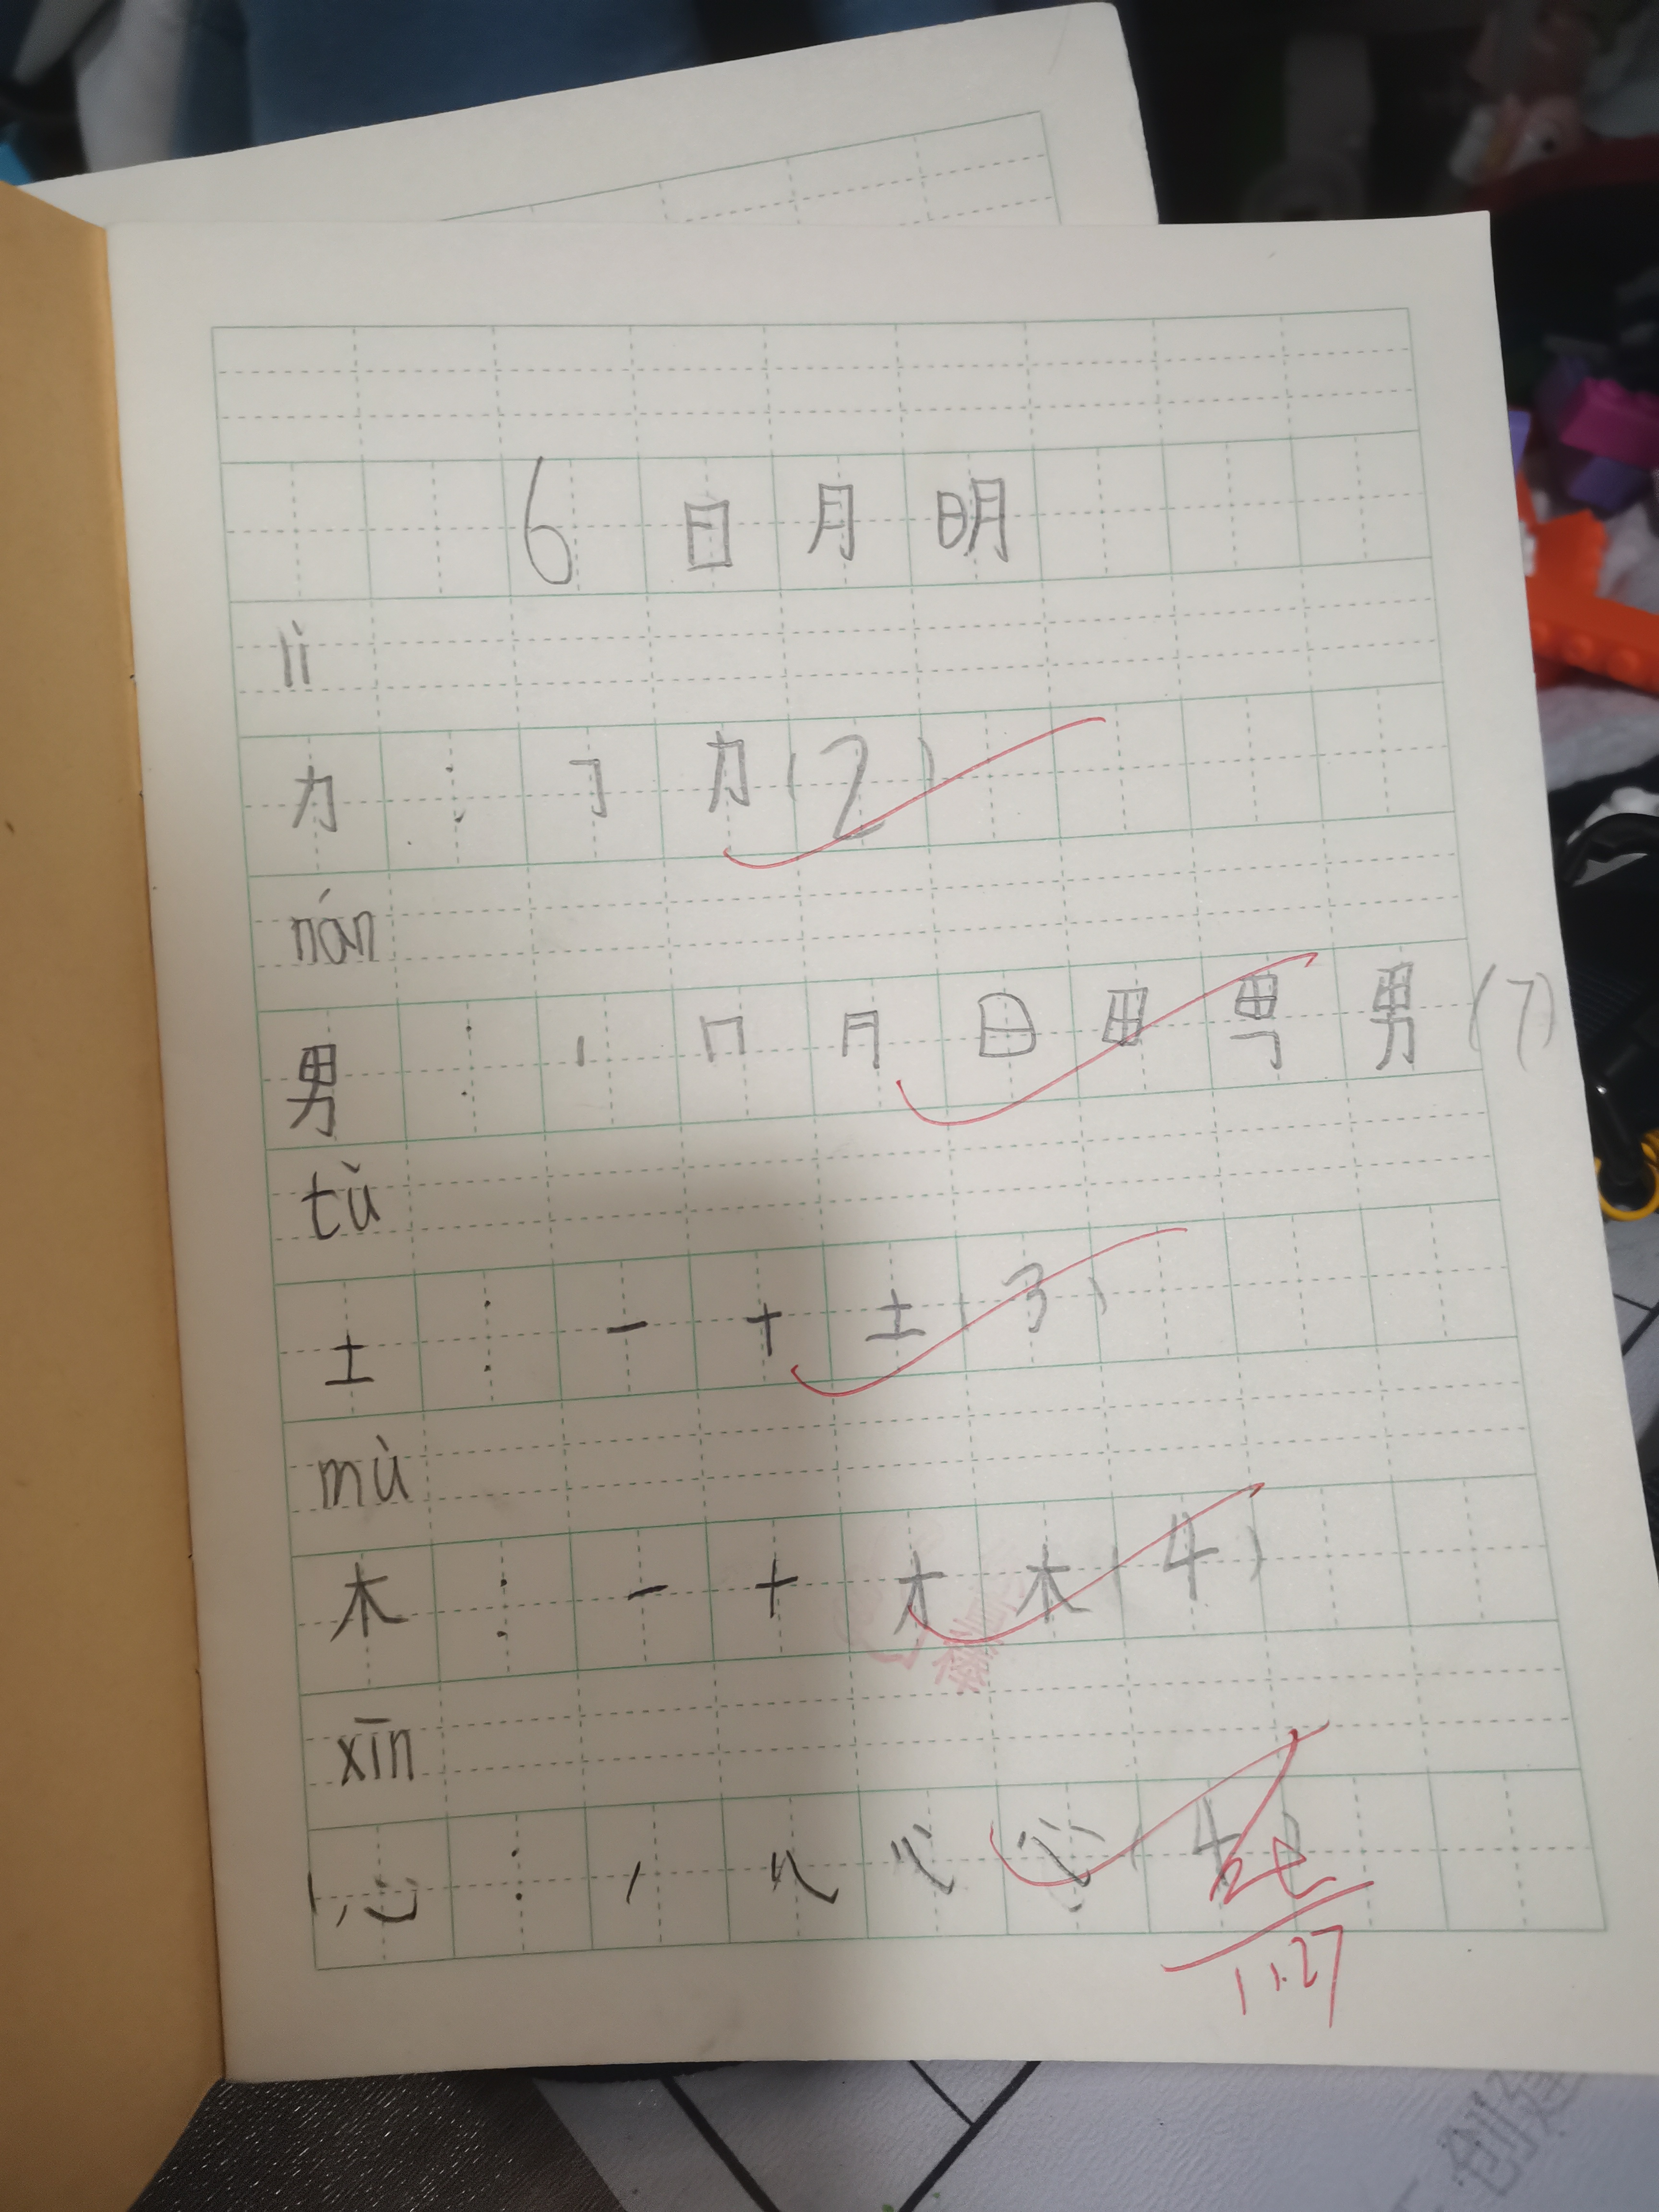 6 日 月 明
lì
力 : 𠃌 力 (2)
nán
男 : 丨 冂 月 日 田 男 男 (7)
tǔ
土 : 一 十 土 (3)
mù
木 : 一 十 才 木 (4)
xīn
心 : 心 (4)
11.27
创建